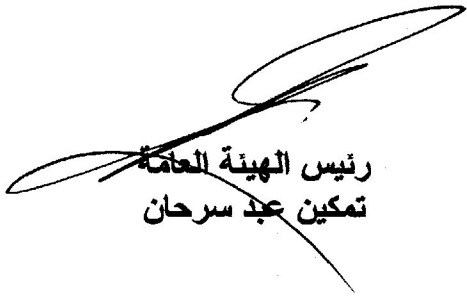 رئيس الهيئة العامة
تمكين عبد سرحان